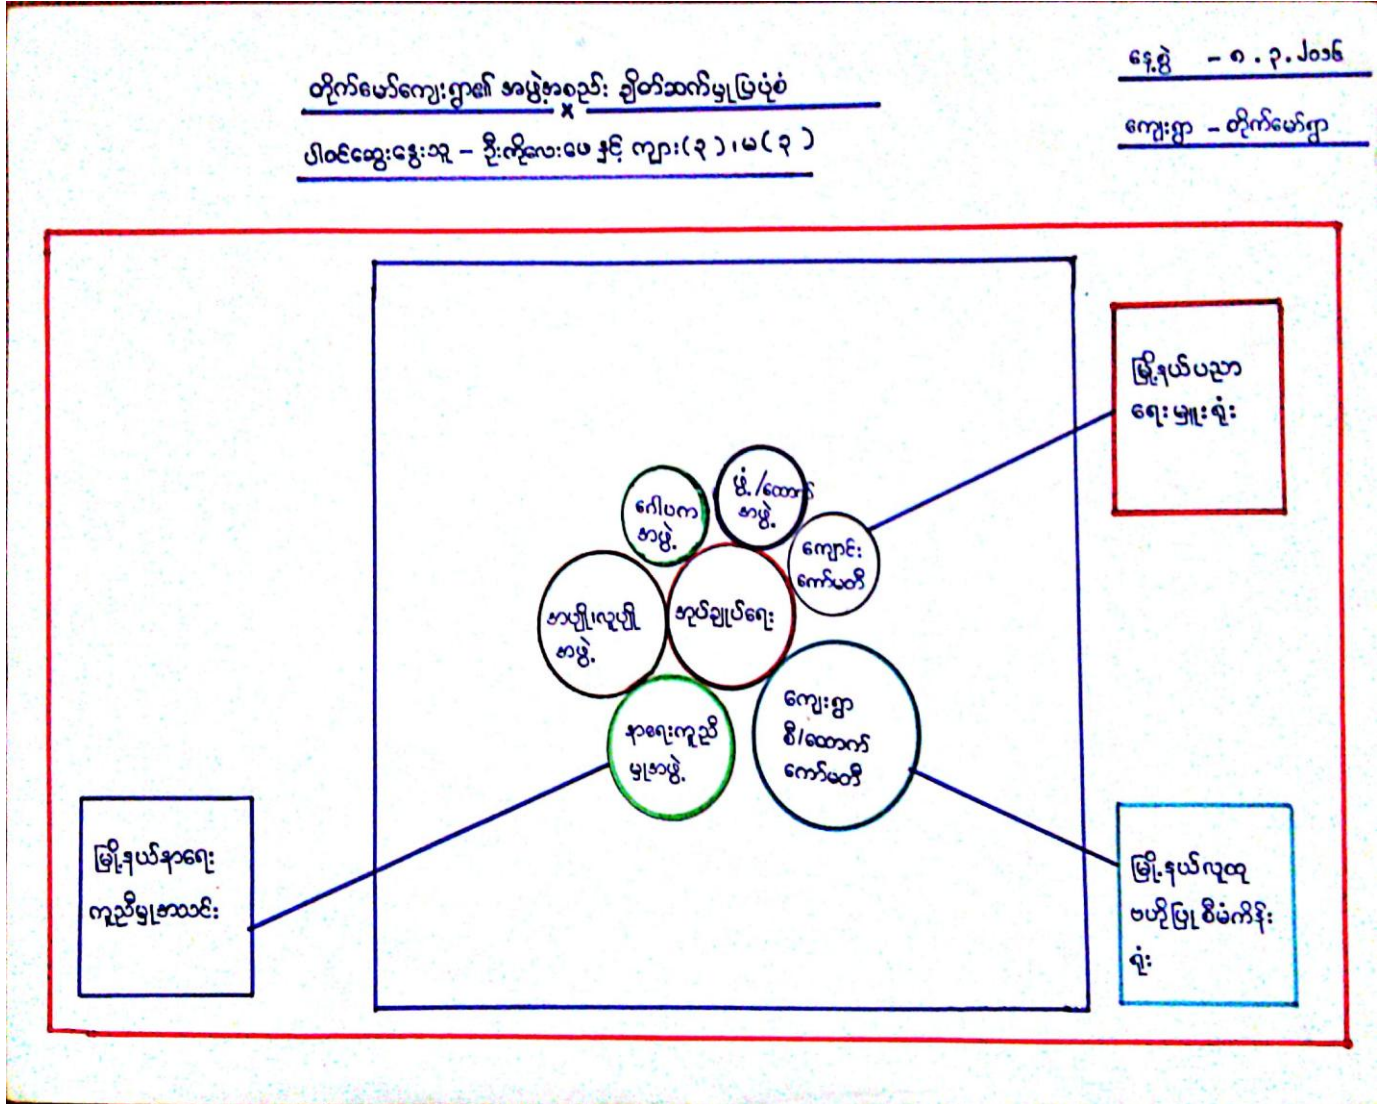 တိုက်မော်ကျေးရွာ၏ အဖွဲ့အစည်း ချိတ်ဆက်မှုပြပုံစံ
x
ပါဝင်ဆွေးနွေးသူ - ဦးကိုလေးဖေ နှင့် ကျား(၃)၊မ(၃)
နေ့စွဲ - ၈.၃.၂၀၁၆
ကျေးရွာ - တိုက်မော်ရွာ
မြို့နယ်ပညာ
ရေးမှူးရုံး
ဂေါပက
အဖွဲ့
ဖွံ့/ထောက်
အဖွဲ့
ကျောင်း
ကော်မတီ
အပျို၊လူပျို
အဖွဲ့
အုပ်ချုပ်ရေး
နာရေးကူညီ
မှုအဖွဲ့
ကျေးရွာ
စီ/ထောက်
ကော်မတီ
မြို့နယ်နာရေး
ကူညီမှုအသင်း
မြို့နယ်လူထု
ဗဟိုပြုစီမံကိန်း
ရုံး